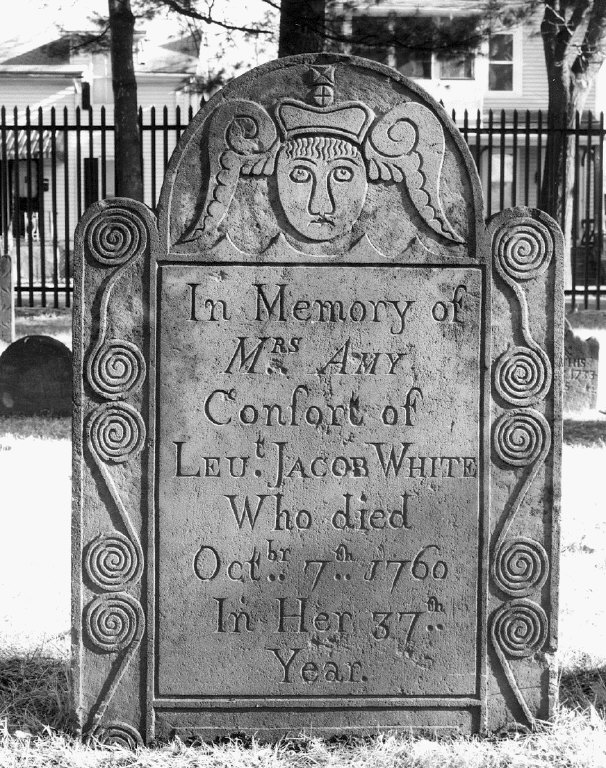 In Memory of
Mʳˢ AMY
Conſort of
LEUᵗ. JACOB WHITE
Who died
Octᵇʳ.. 7ᵗʰ.. 1760
In Her 37ᵗʰ..
Year.
1773